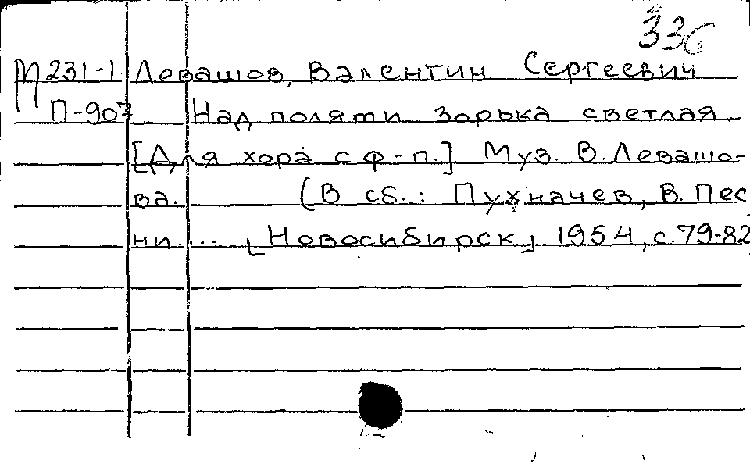 336
М231-1 Левашов, Валентин Сергеевич
П-903 Над полями зорька светлая.
[Для хора с ф.-п.] Муз. В. Левашо-
ва. (В сб.: Пухначев, В. Пес
ни ... [Новосибирск], 1954, с. 79-82